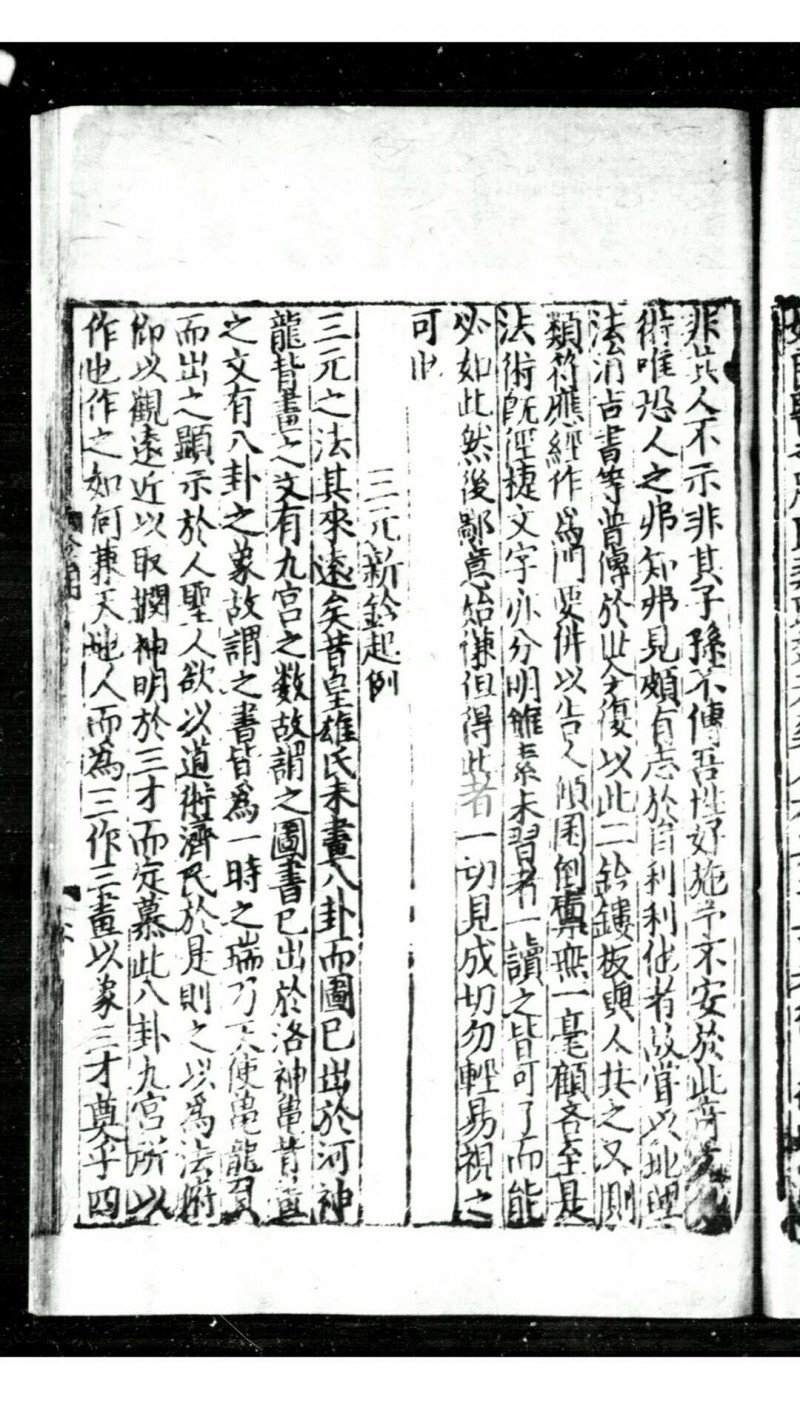 非其人不示非其子孫不傳吾性好施予不安於此
術唯恐人之弗知弗見頗有志於自利利他者故嘗以地理
法消占書等普傳於世今復以此二鈐鏤板與人共之又則
類符應經作為門要併以告人傾囷倒廩無一毫顧吝至是
法術既徑捷文字亦分明雖素未習者一讀之皆可了而能
必如此然後鄙意始慊但得此者一切見成切勿輕易視之
可也
三元新鈐起例
三元之法其來遠矣昔皇雄氏未畫八卦而圖已出於河神
龍背畫之文有九宮之数故謂之圖書已出於洛神龜背畫
之文有八卦之象故謂之書皆為一時之瑞乃天使龜龍負
而出之顯示於人聖人欲以道術濟民於是則之以為法俯
仰以觀遠近以取撊神明於三才而定慕此八卦九宮所以
作也作之如何兼天地人而為三作三畫以象三才奠乎四